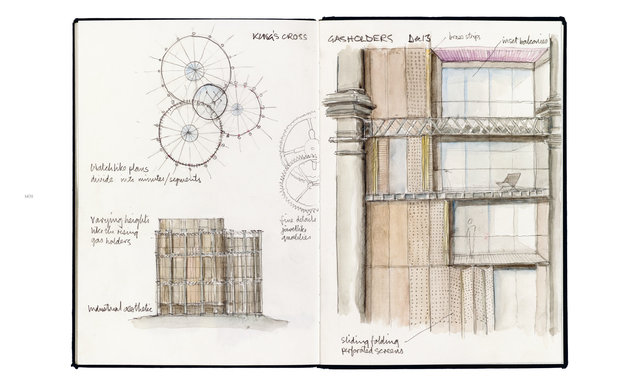 KING'S CROSS GASHOLDERS Dec 13
brass strips
inset balconies
Watchlike plans
divide into minutes/segments
varying heights
like the rising
gas holders
fine details
jewel like
qualities
Industrial aesthetic
sliding folding
perforated screens